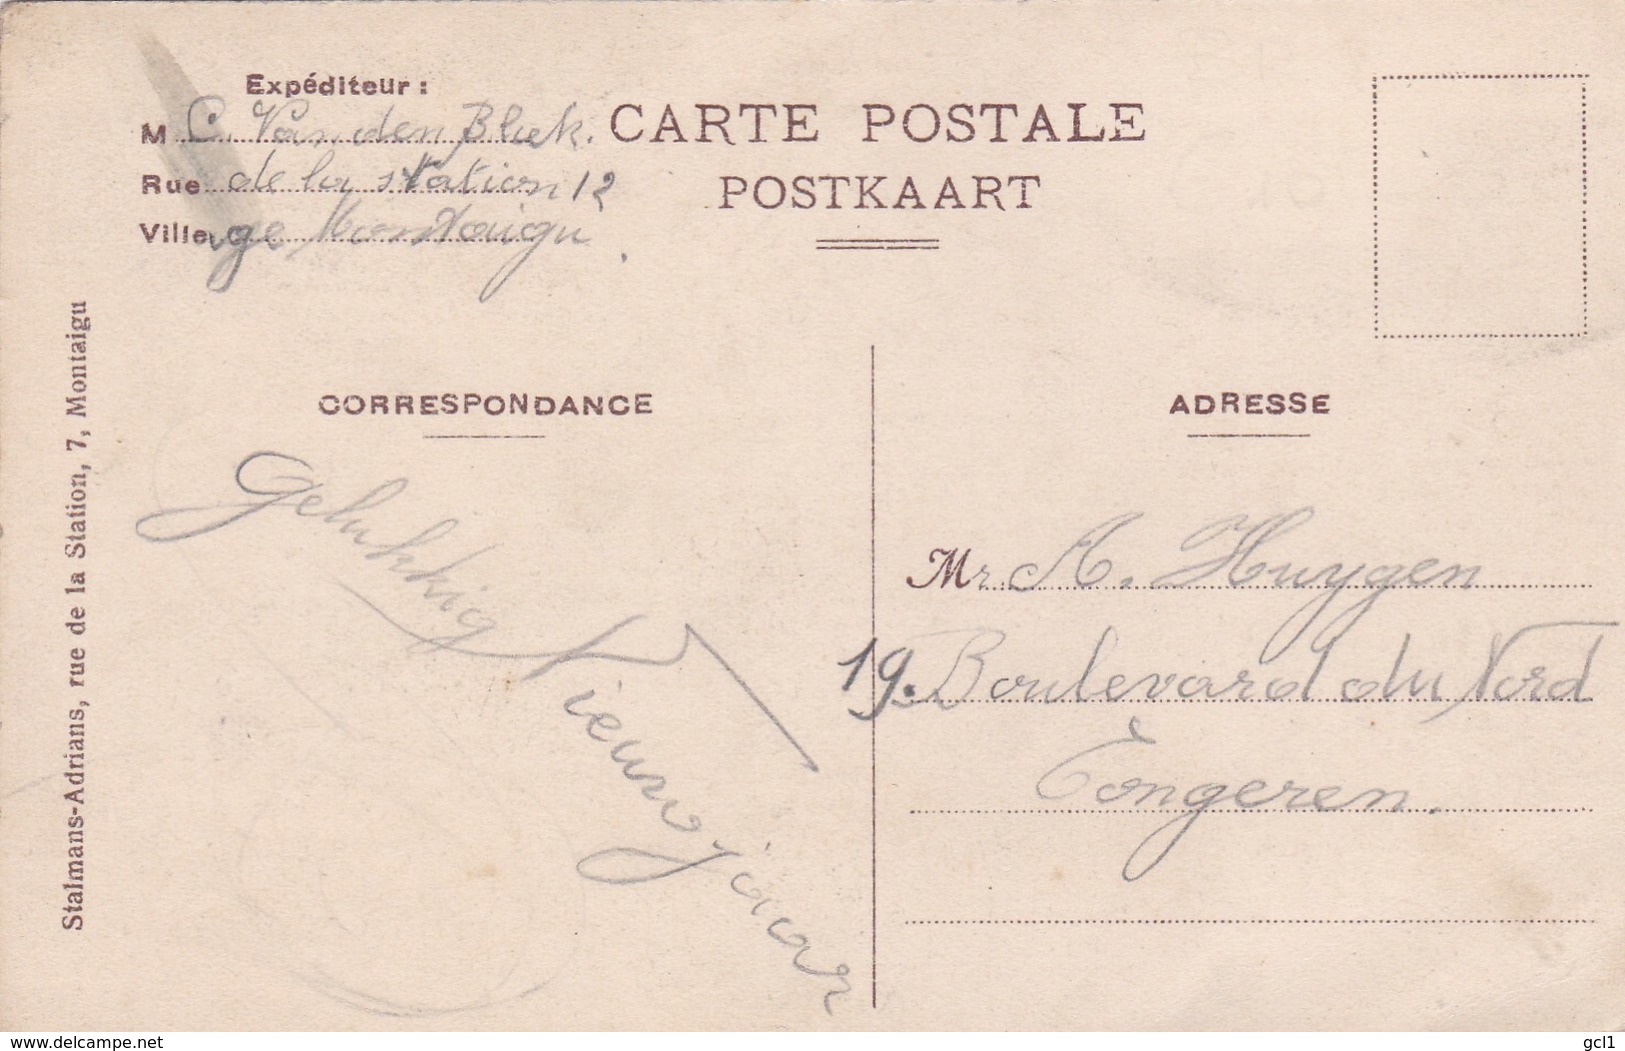 Expéditeur :
M C. Van den Bliek.
Rue de la station 12
Ville Montaigu
CARTE POSTALE
POSTKAART
Stalmans-Adrians, rue de la Station, 7, Montaigu
CORRESPONDANCE
Gelukkig
Nieuwjaar
ADRESSE
Mr. A. Huygen
19. Boulevard du Nord
Tongeren.
www.delcampe.net
gcl1